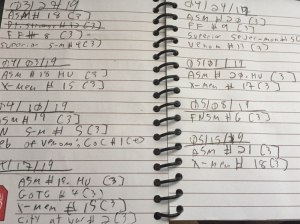 03/27/19
ASM # 18 (3)
FF # 8 (3)
Superior S-M # 4 (3)
04/03/19
ASM # 18.HU (3)
X-Men # 15 (3)
04/10/19
ASM # 19 (3)
S-M # 5 (3)
of Venom: (3)
17/19
ASM # 19.HU (3)
GOTG # 4 (3)
X-Men # (3)
City at War # 2 (3)
04/24/19
ASM # 20 (3)
FF # 9 (3)
Superior
Venom # 13 (3)
05/01/19
ASM # 20.HU (3)
X-Men # 17 (3)
05/08/19
FNSM # 6 (3)
05/15/19
ASM # 21 (3)
X-Men # 18 (3)